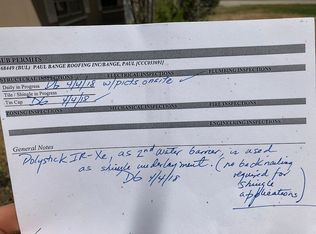 SUB PERMITS
68449 (BUL) PAUL BANGE ROOFING INC/BANGE, PAUL [CCC013691]
STRUCTURAL INSPECTIONS ELECTRICAL INSPECTIONS PLUMBING INSPECTIONS
Daily in Progress DG 4/4/18 w/picks onsite ✓
Tile / Shingle in Progress
Tin Cap DG 4/4/18 ✓
ZONING INSPECTIONS MECHANICAL INSPECTIONS FIRE INSPECTIONS
ENGINEERING INSPECTIONS
General Notes
Polystick IR-Xe, as 2nd water barrier, is used
as shingle underlayment. (no backnailing
required for
shingle
applications)
DG 4/4/18